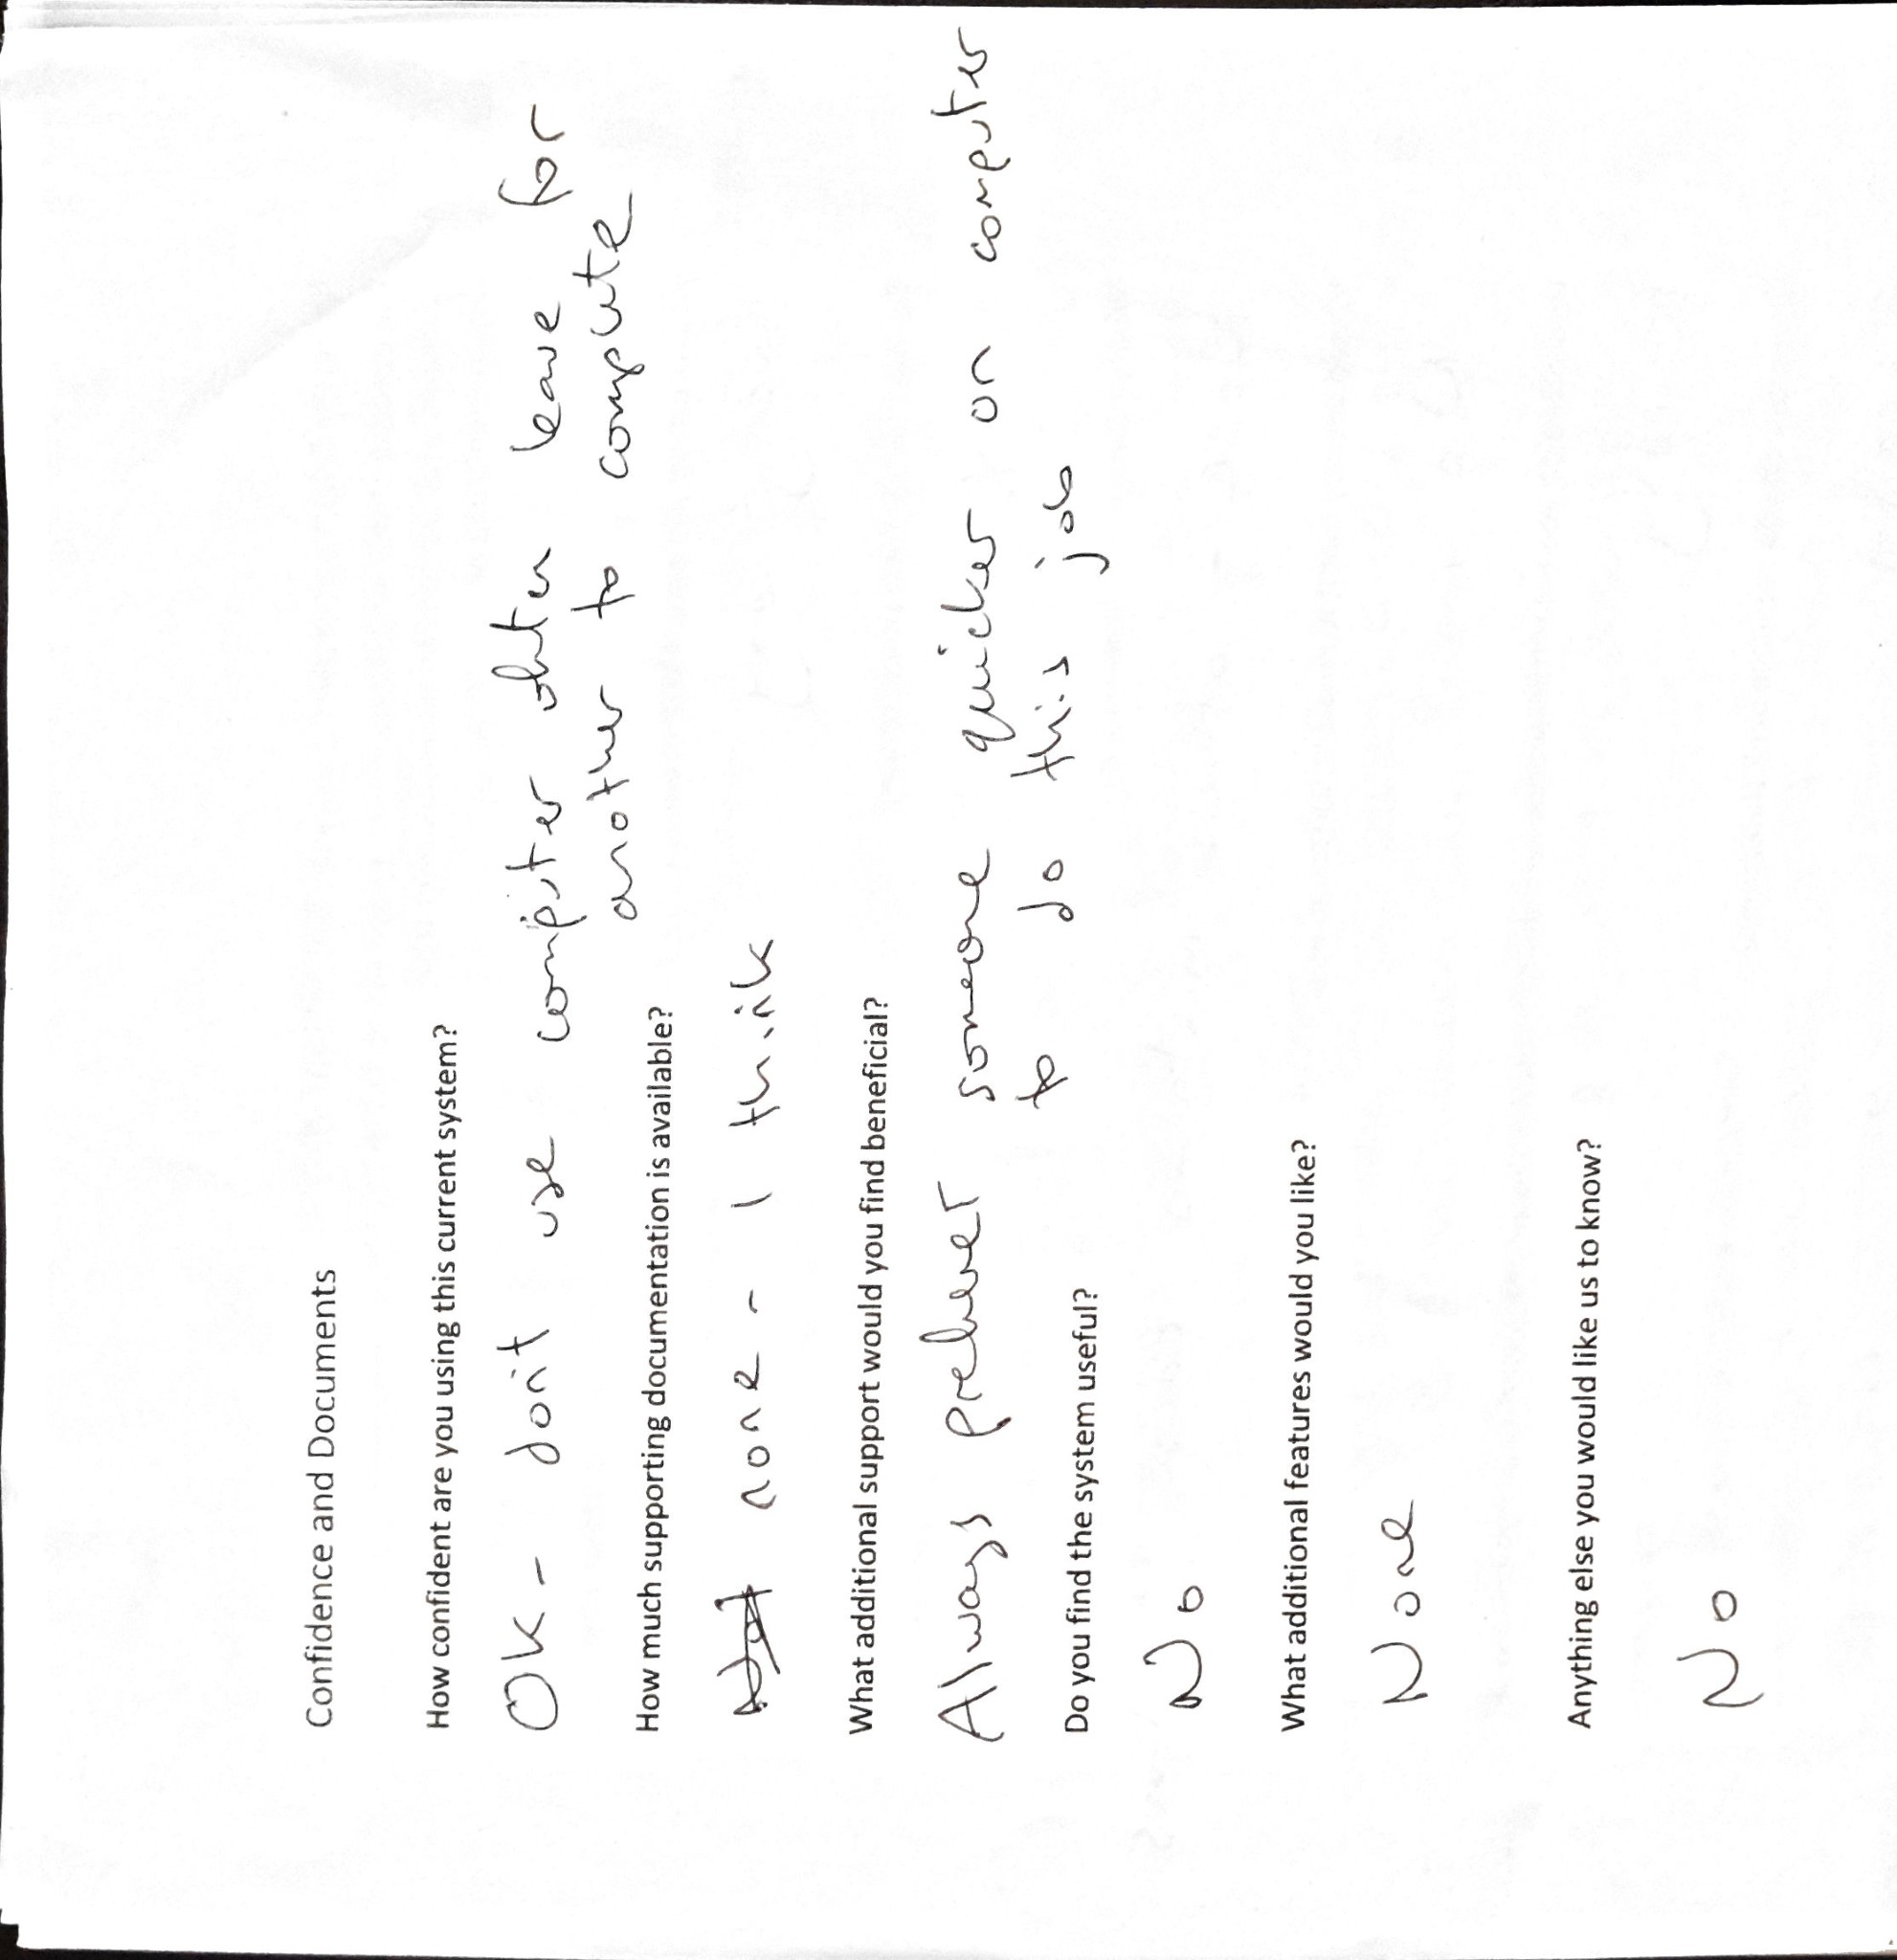 Confidence and Documents
How confident are you using this current system?
OK - don't use computer often leave for
another to compute
How much supporting documentation is available?
none - I think
What additional support would you find beneficial?
Always prefer someone quicker on computer
to do this job
Do you find the system useful?
No
What additional features would you like?
None
Anything else you would like us to know?
No